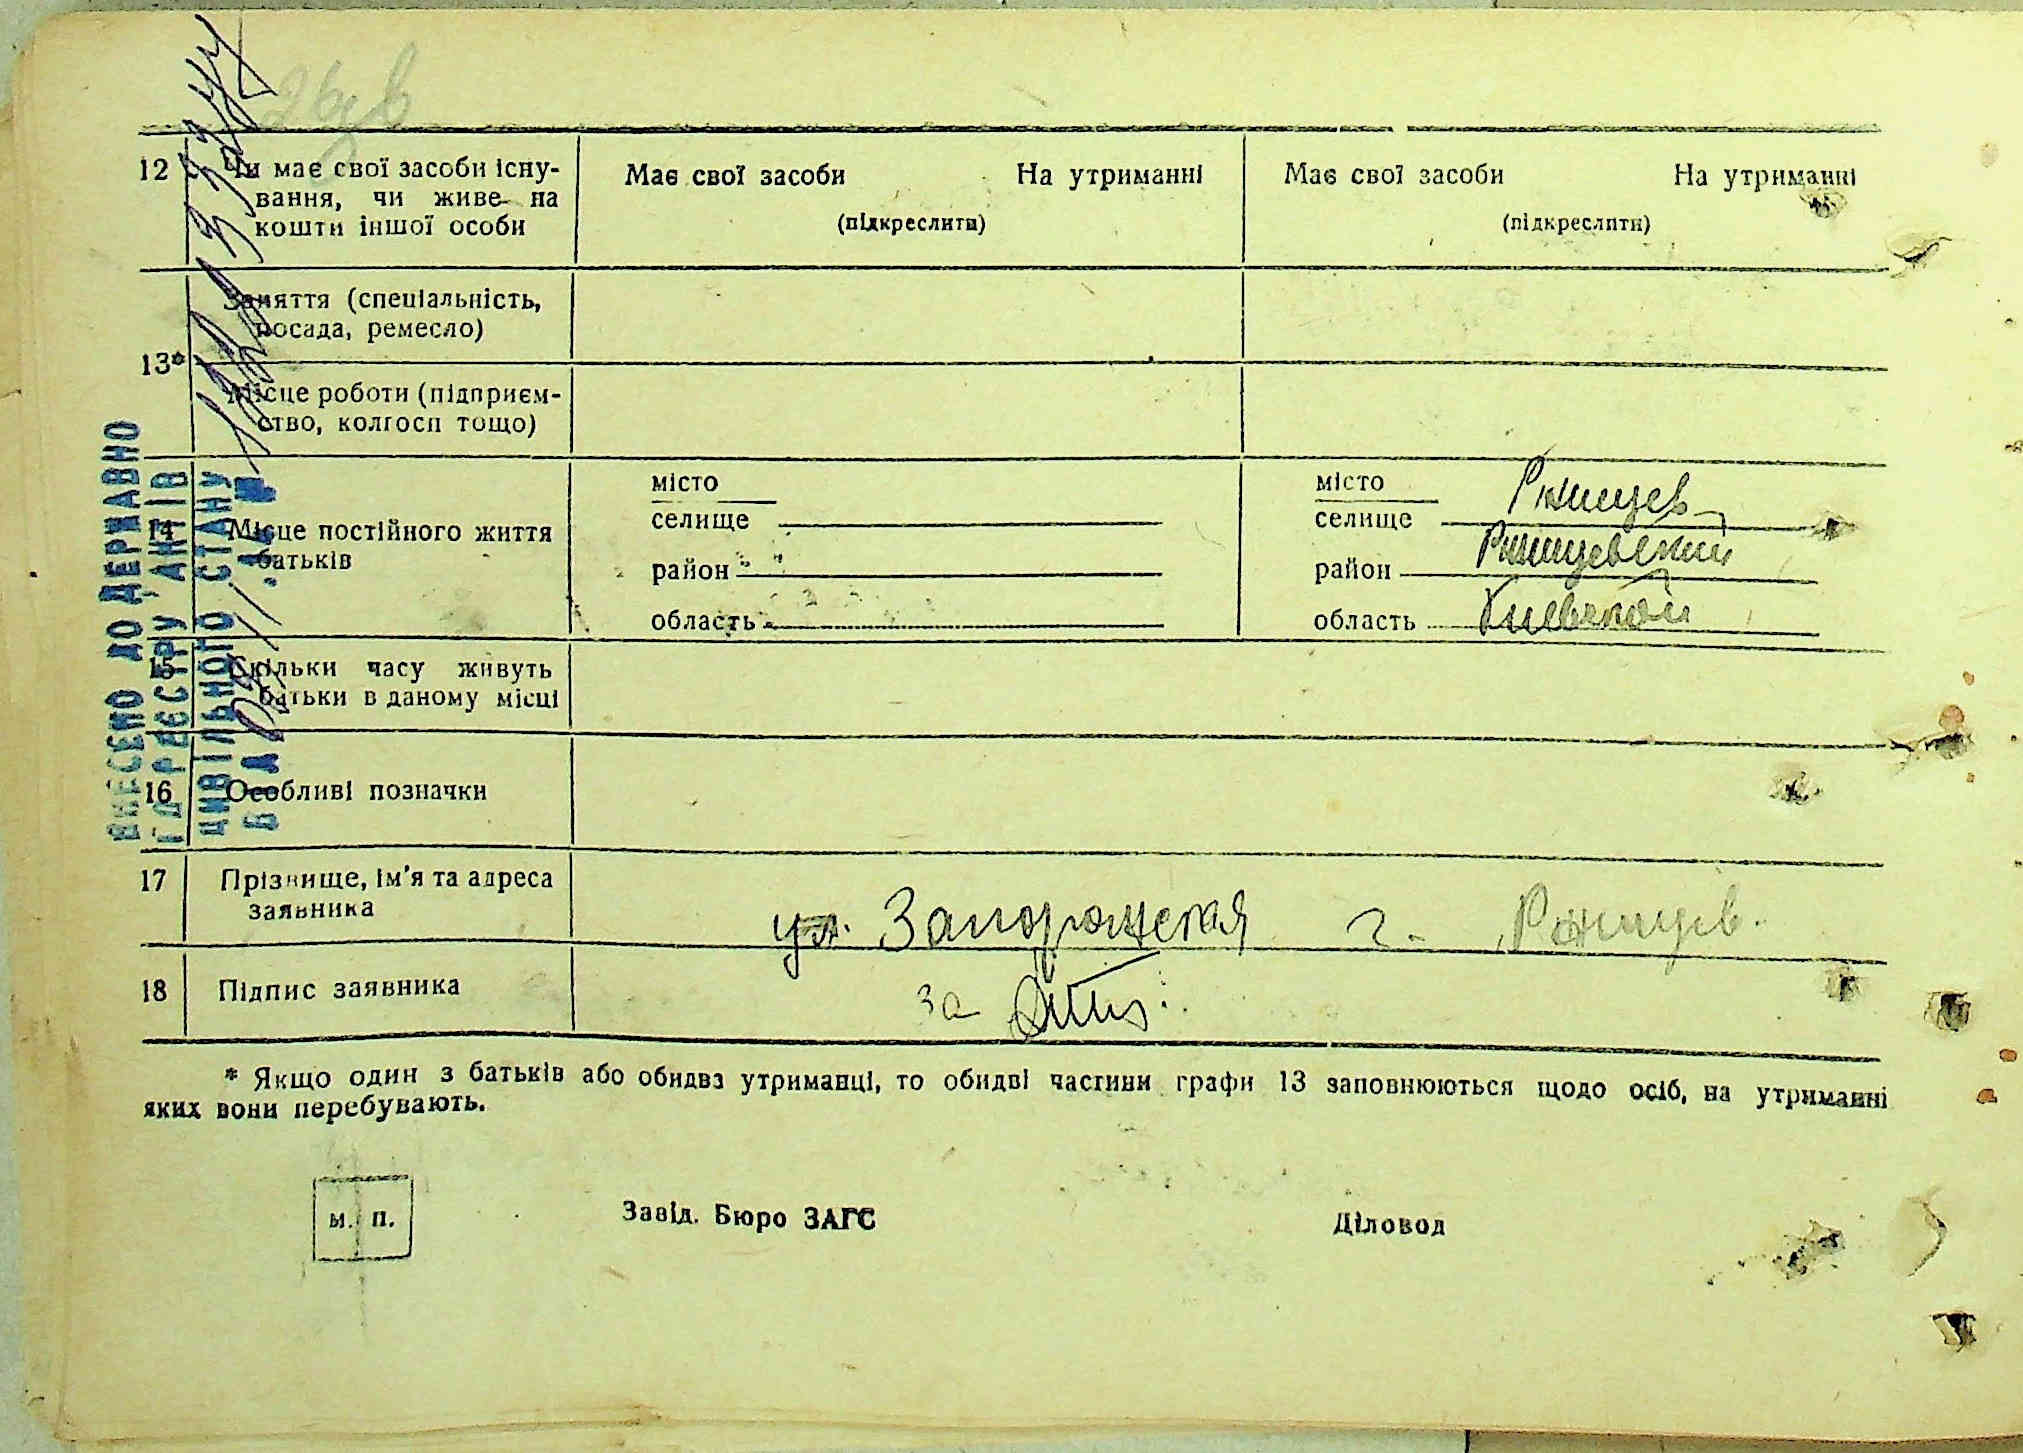 12 Чи має свої засоби існу-
вання, чи живе на
кошти іншої особи
Має свої засоби На утриманні
(підкреслити)
Має свої засоби На утриманні
(підкреслити)
13*
Заняття (спеціальність,
посада, ремесло)
Місце роботи (підприєм-
ство, колгосп тощо)
14 Місце постійного життя
батьків
місто
селище
район
область
місто
селище Ржищев
район Ржищевский
область Киевской
15 Скільки часу живуть
батьки в даному місці
16 Особливі позначки
17 Прізвище, ім'я та адреса
заявника
ул. Запорожская г. Ржищев.
18 Підпис заявника
за
* Якщо один з батьків або обидва утриманці, то обидві частини графи 13 заповнюються щодо осіб, на утриманні
яких вони перебувають.
м. п.
Завід. Бюро ЗАГС
Діловод
ВНЕСЕНО ДО ДЕРЖАВНО
ГО РЕЄСТРУ АКТІВ
ЦИВІЛЬНОГО СТАНУ